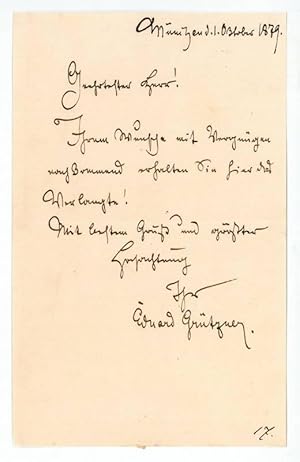 München d. 1. Oktober 1879.
Geehrtester Herr!
Ihrem Wunsche mit Vergnügen
nachkommend erhalten Sie hier das
Verlangte!
Mit bestem Gruß und größter
Hochachtung
Ihr
Eduard Grützner.
17.